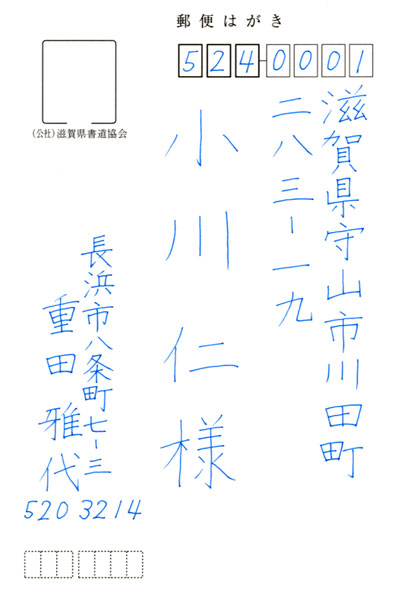 郵便はがき
524-0001
(公社)滋賀県書道協会
滋賀県守山市川田町
二八三-一九
小川仁様
長浜市八条町七-三
重田雅代
520 3214